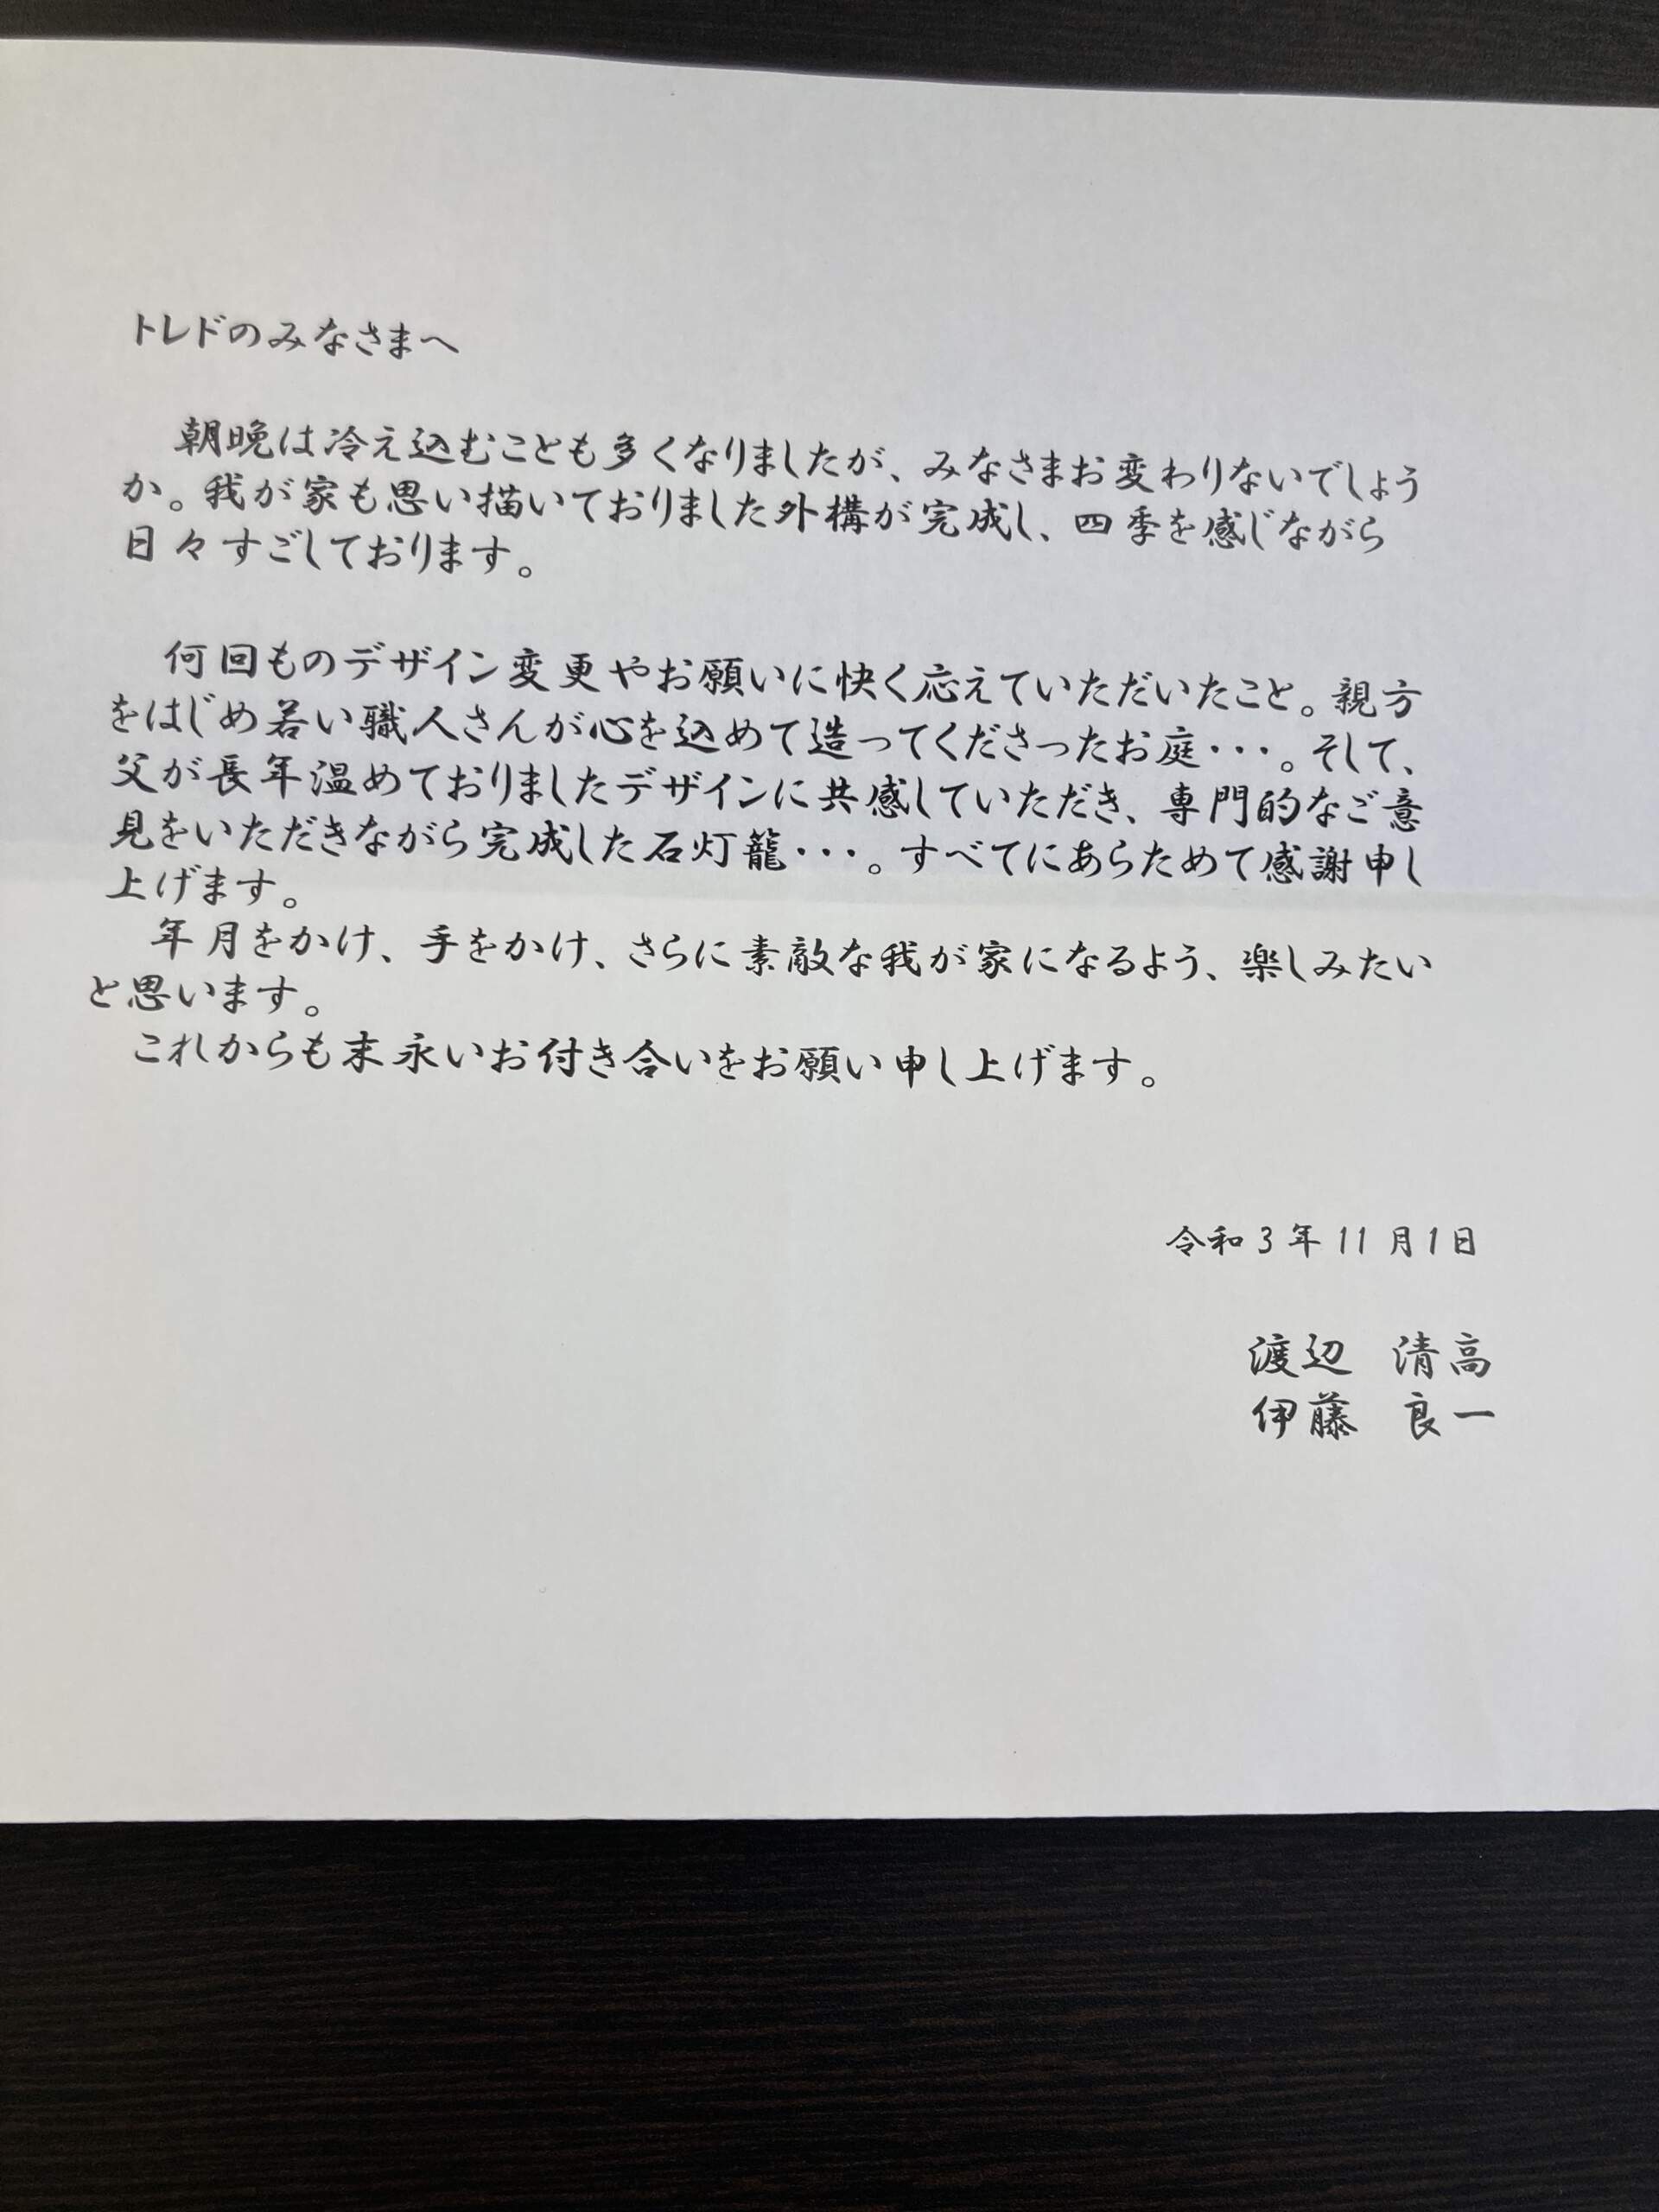 トレドのみなさまへ
朝晩は冷え込むことも多くなりましたが、みなさまお変わりないでしょう
か。我が家も思い描いておりました外構が完成し、四季を感じながら
日々すごしております。
何回ものデザイン変更やお願いに快く応えていただいたこと。親方
をはじめ若い職人さんが心を込めて造ってくださったお庭・・・。そして、
父が長年温めておりましたデザインに共感していただき、専門的なご意
見をいただきながら完成した石灯籠・・・。すべてにあらためて感謝申し
上げます。
年月をかけ、手をかけ、さらに素敵な我が家になるよう、楽しみたい
と思います。
これからも末永いお付き合いをお願い申し上げます。
令和3年11月1日
渡辺 清高
伊藤 良一